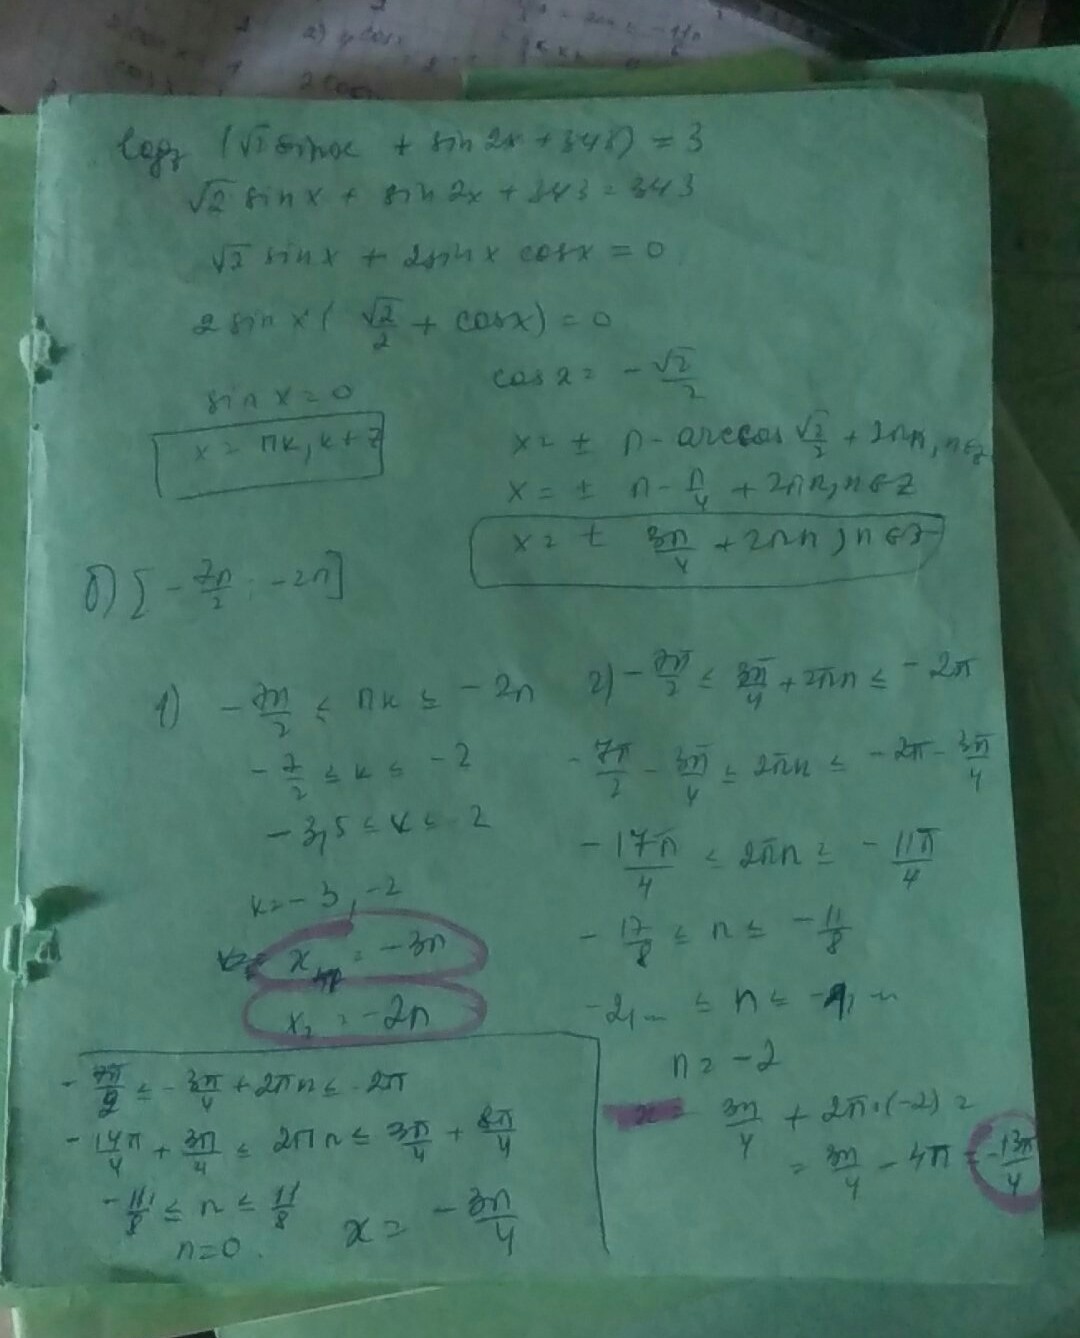 log₇ (√2 sinx + sin 2x + 343) = 3
√2 sin x + sin 2x + 343 = 343
√2 sin x + 2 sin x cos x = 0
2 sin x ( √2/2 + cos x) = 0
sin x = 0
x = πk, k ∈ Z
cos x = - √2/2
x = ± π - arccos √2/2 + 2πn, n∈Z
x = ± π - π/4 + 2πn, n∈Z
x = ± 3π/4 + 2πn, n∈Z
б) [ - 7π/2 ; -2π]
1) - 7π/2 ≤ πk ≤ - 2π
- 7/2 ≤ k ≤ -2
- 3,5 ≤ k ≤ -2
k = -3, -2
x = -3π
x₂ = -2π
2) - 7π/2 ≤ 3π/4 + 2πn ≤ - 2π
- 7π/2 - 3π/4 ≤ 2πn ≤ -2π - 3π/4
- 17π/4 ≤ 2πn ≤ - 11π/4
- 17/8 ≤ n ≤ - 11/8
-2,... ≤ n ≤ -1,...
n = -2
x = 3π/4 + 2π·(-2) =
= 3π/4 - 4π = -13π/4
- 7π/2 ≤ - 3π/4 + 2πn ≤ -2π
- 14π/4 + 3π/4 ≤ 2πn ≤ 3π/4 + 8π/4
- 11/8 ≤ n ≤ 11/8
n = 0.
x = - 3π/4